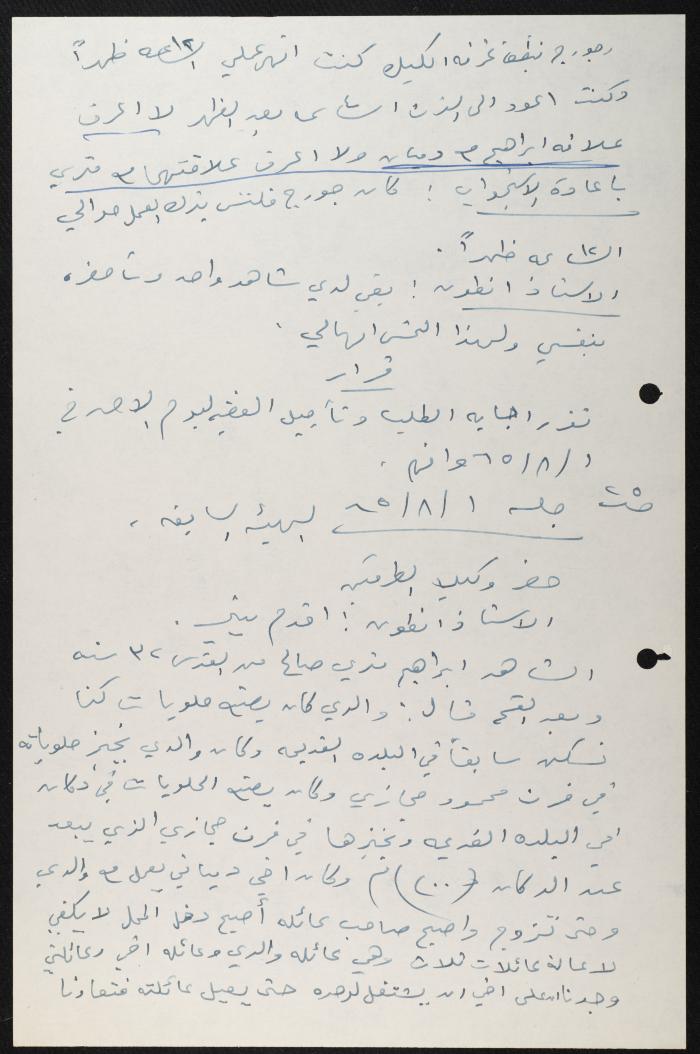 وجورج فلنتس غرفه الكليك كنت انهي عملي الساعه ١٢ ظهراً
وكنت اعود الى الفرن الساعه بعد الظهر لا اعرف
علاقه ابراهيم مع دميان ولا اعرف علاقتهما مع متري
باعادة الاستجواب : كان جورج فلنتس يترك العمل حوالي
الساعه ١٢ ظهراً .
الاستاذ انطون : بقي لدي شاهد واحد وسأحضره
بنفسي ولهذا التمس امهالي .
قرار
تقرر اجابه الطلب وتأجيل القضيه ليوم الاحد في
١/٨/٦٥ وافهم .
جلسه ١/٨/٦٥ الهيئه السابقه .
حضر وكيلا الطرفين
الاستاذ انطون : اقدم بيتي .
الشاهد ابراهيم متري صالح من القدس ٣٢ سنه
وبعد القسم قال : والدي كان يصنع حلويات كنا
نسكن سابقاً في البلده القديمه وكان والدي يخبز حلوياته
في فرن محمود حجازي وكان يصنع الحلويات في دكان
في البلده القديمه ويخبزها في فرن حجازي الذي يبعد
عن الدكان (٢٠٠) م وكان اخي ديماني يعمل مع والدي
وحتى تزوج واصبح صاحب عائله أصبح دخل المحل لا يكفي
لاعالة عائلات ثلاث وهي عائله والدي وعائله اخي وعائلتي
وجدنا على اخي ان يشتغل لوحده حتى يعيل عائلته فتعاونا